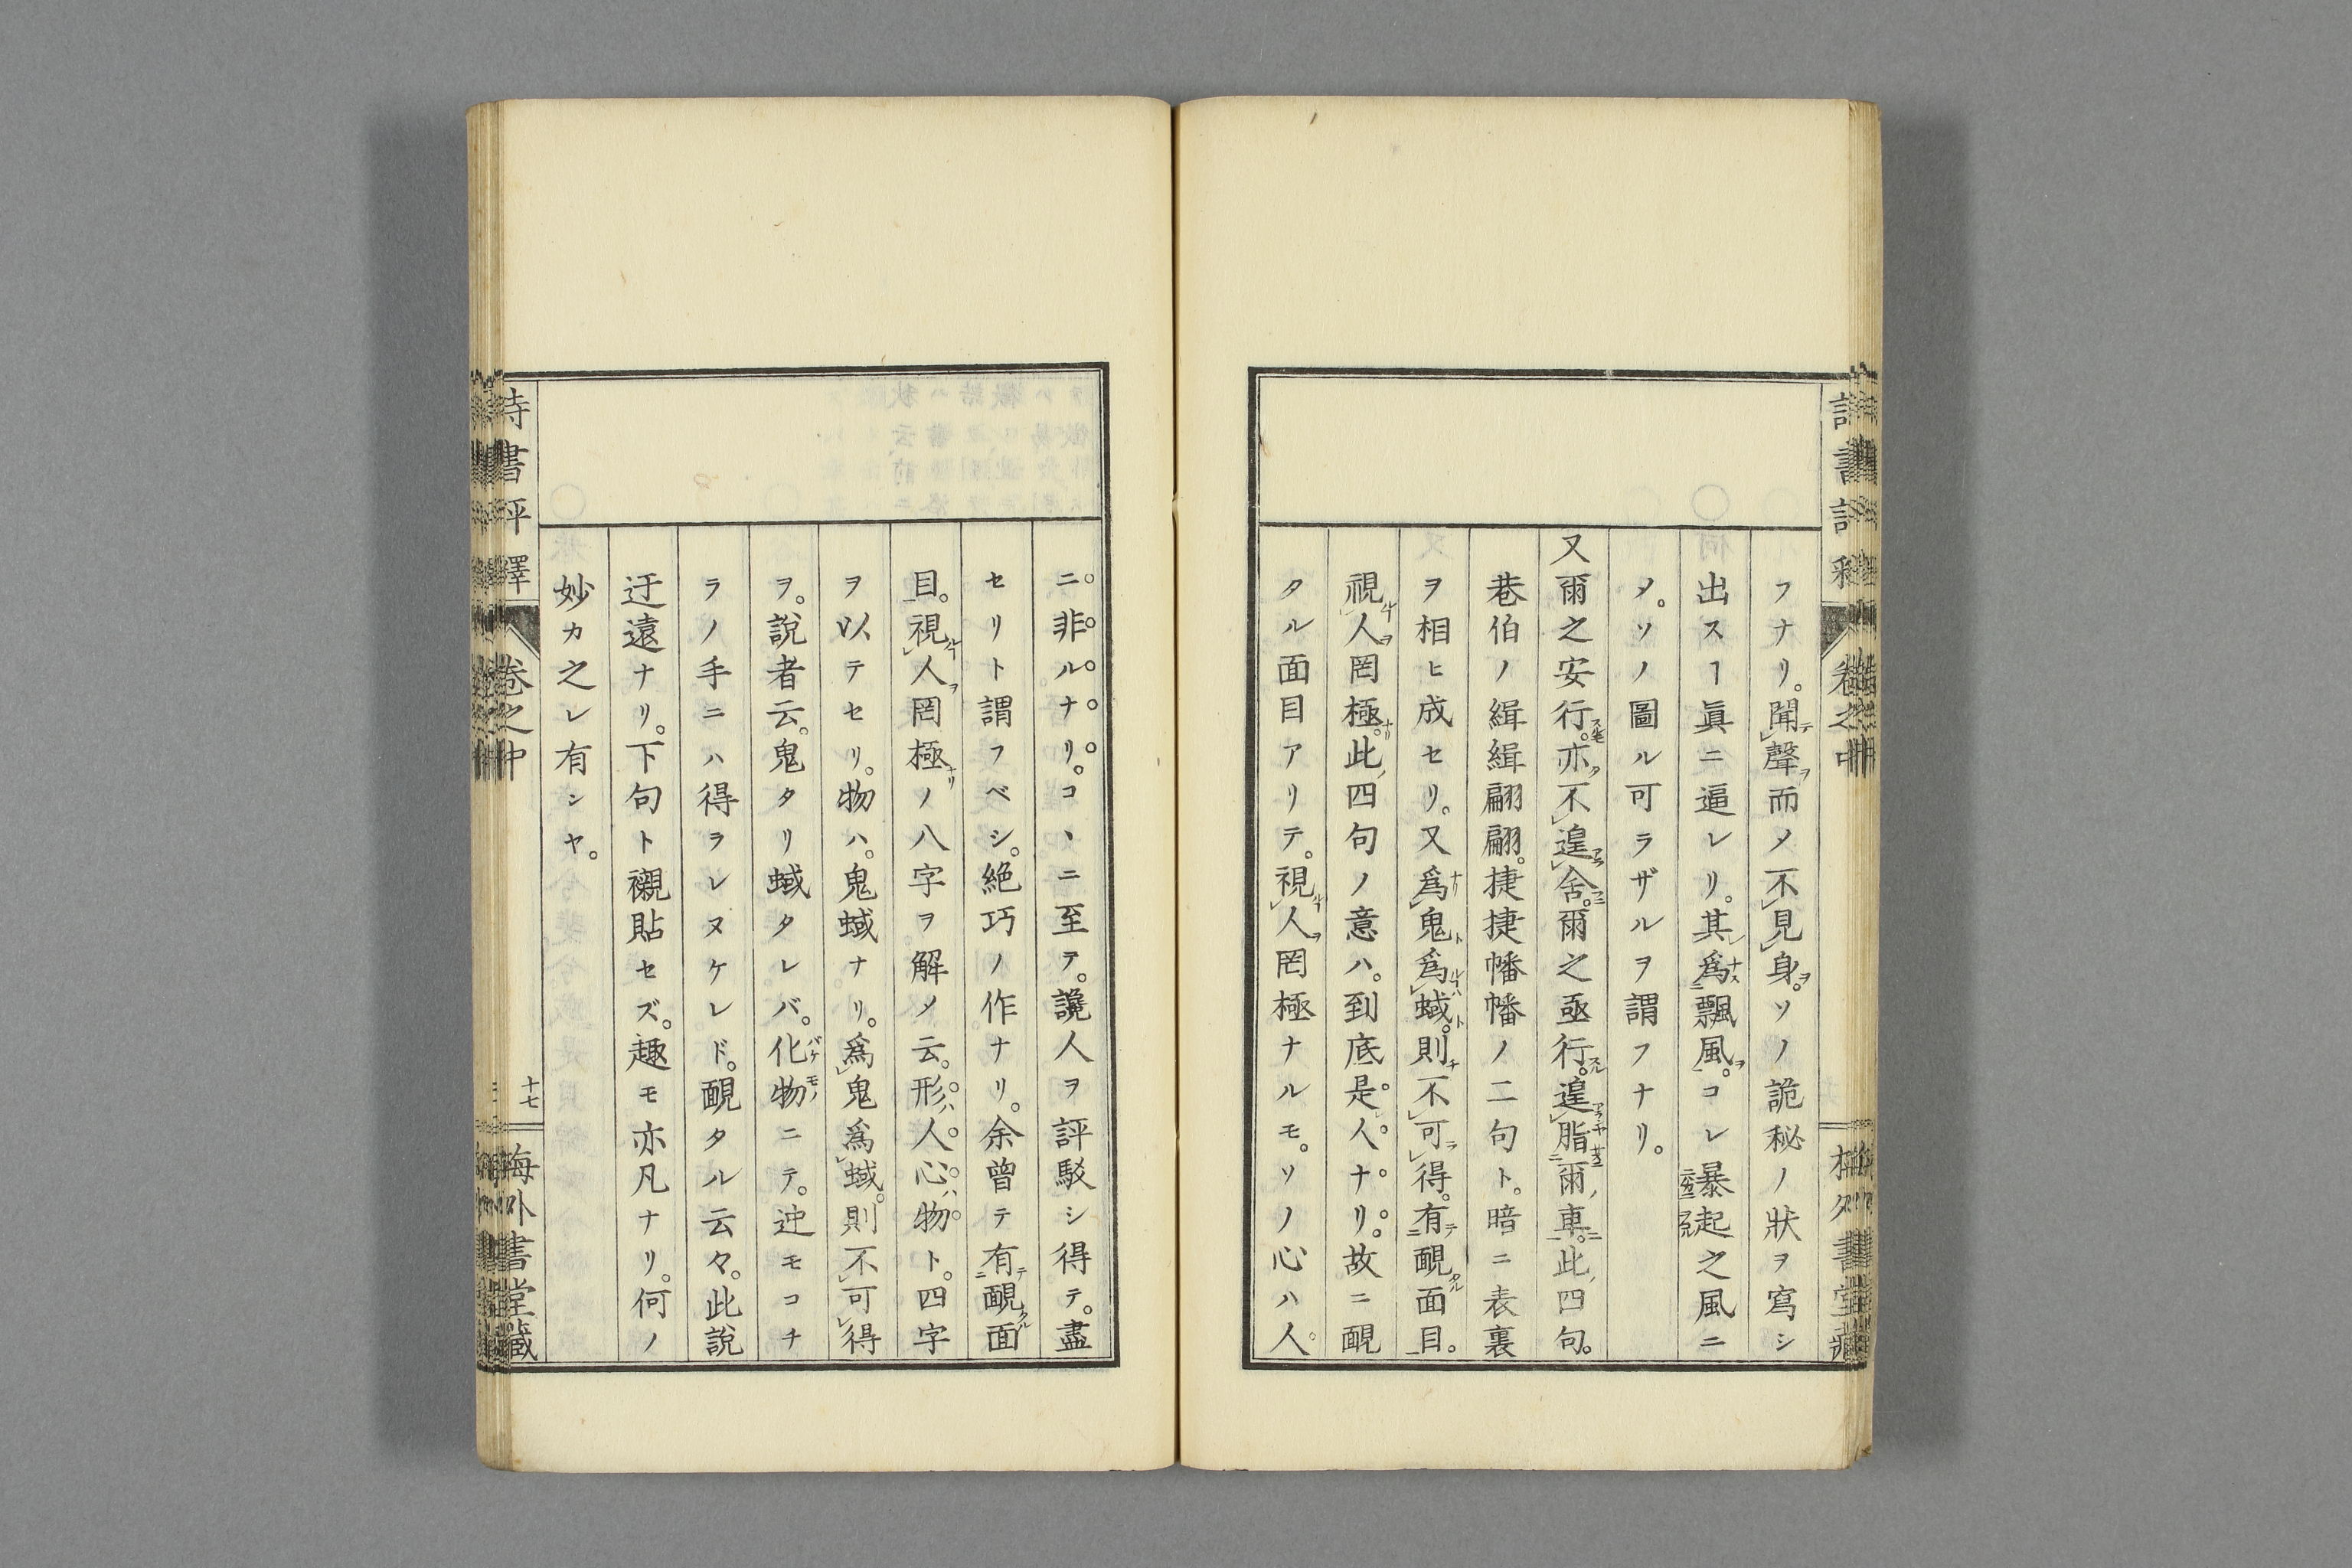 フナリ。聞聲而メ不見身。ソノ詭秘ノ狀ヲ寫シ
出スヿ眞ニ逼レリ。其爲飄風。コレ暴起之風ニ
メ。ソノ圖ル可ラザルヲ謂フナリ。
又爾之安行。亦不遑舍。爾之亟行。遑脂爾車。此四句。
巷伯ノ緝緝翩翩。捷捷幡幡ノ二句ト。暗ニ表裏
ヲ相ヒ成セリ。又爲鬼爲蜮。則不可得。有靦面目。
視人罔極。此四句ノ意ハ。到底是人ナリ。故ニ靦
タル面目アリテ。視人罔極ナルモ。ソノ心ハ人
ニ非ルナリ。コヽニ至テ。讒人ヲ評駁シ得テ。盡
セリト謂フベシ。絶巧ノ作ナリ。余曾テ有靦面
目。視人罔極ノ八字ヲ解メ云。形ハ人。心ハ物ト。四字
ヲ以テセリ。物ハ。鬼蜮ナリ。爲鬼爲蜮。則不可得
ヲ。說者云。鬼タリ蜮タレバ。化物ニテ。迚モコチ
ラノ手ニハ得ラレヌケレド。靦タル云々。此說
迂遠ナリ。下句ト襯貼セズ。趣モ亦凡ナリ。何ノ
妙カ之レ有ンヤ。
詩書評釋
卷之中
十七
海外書堂藏